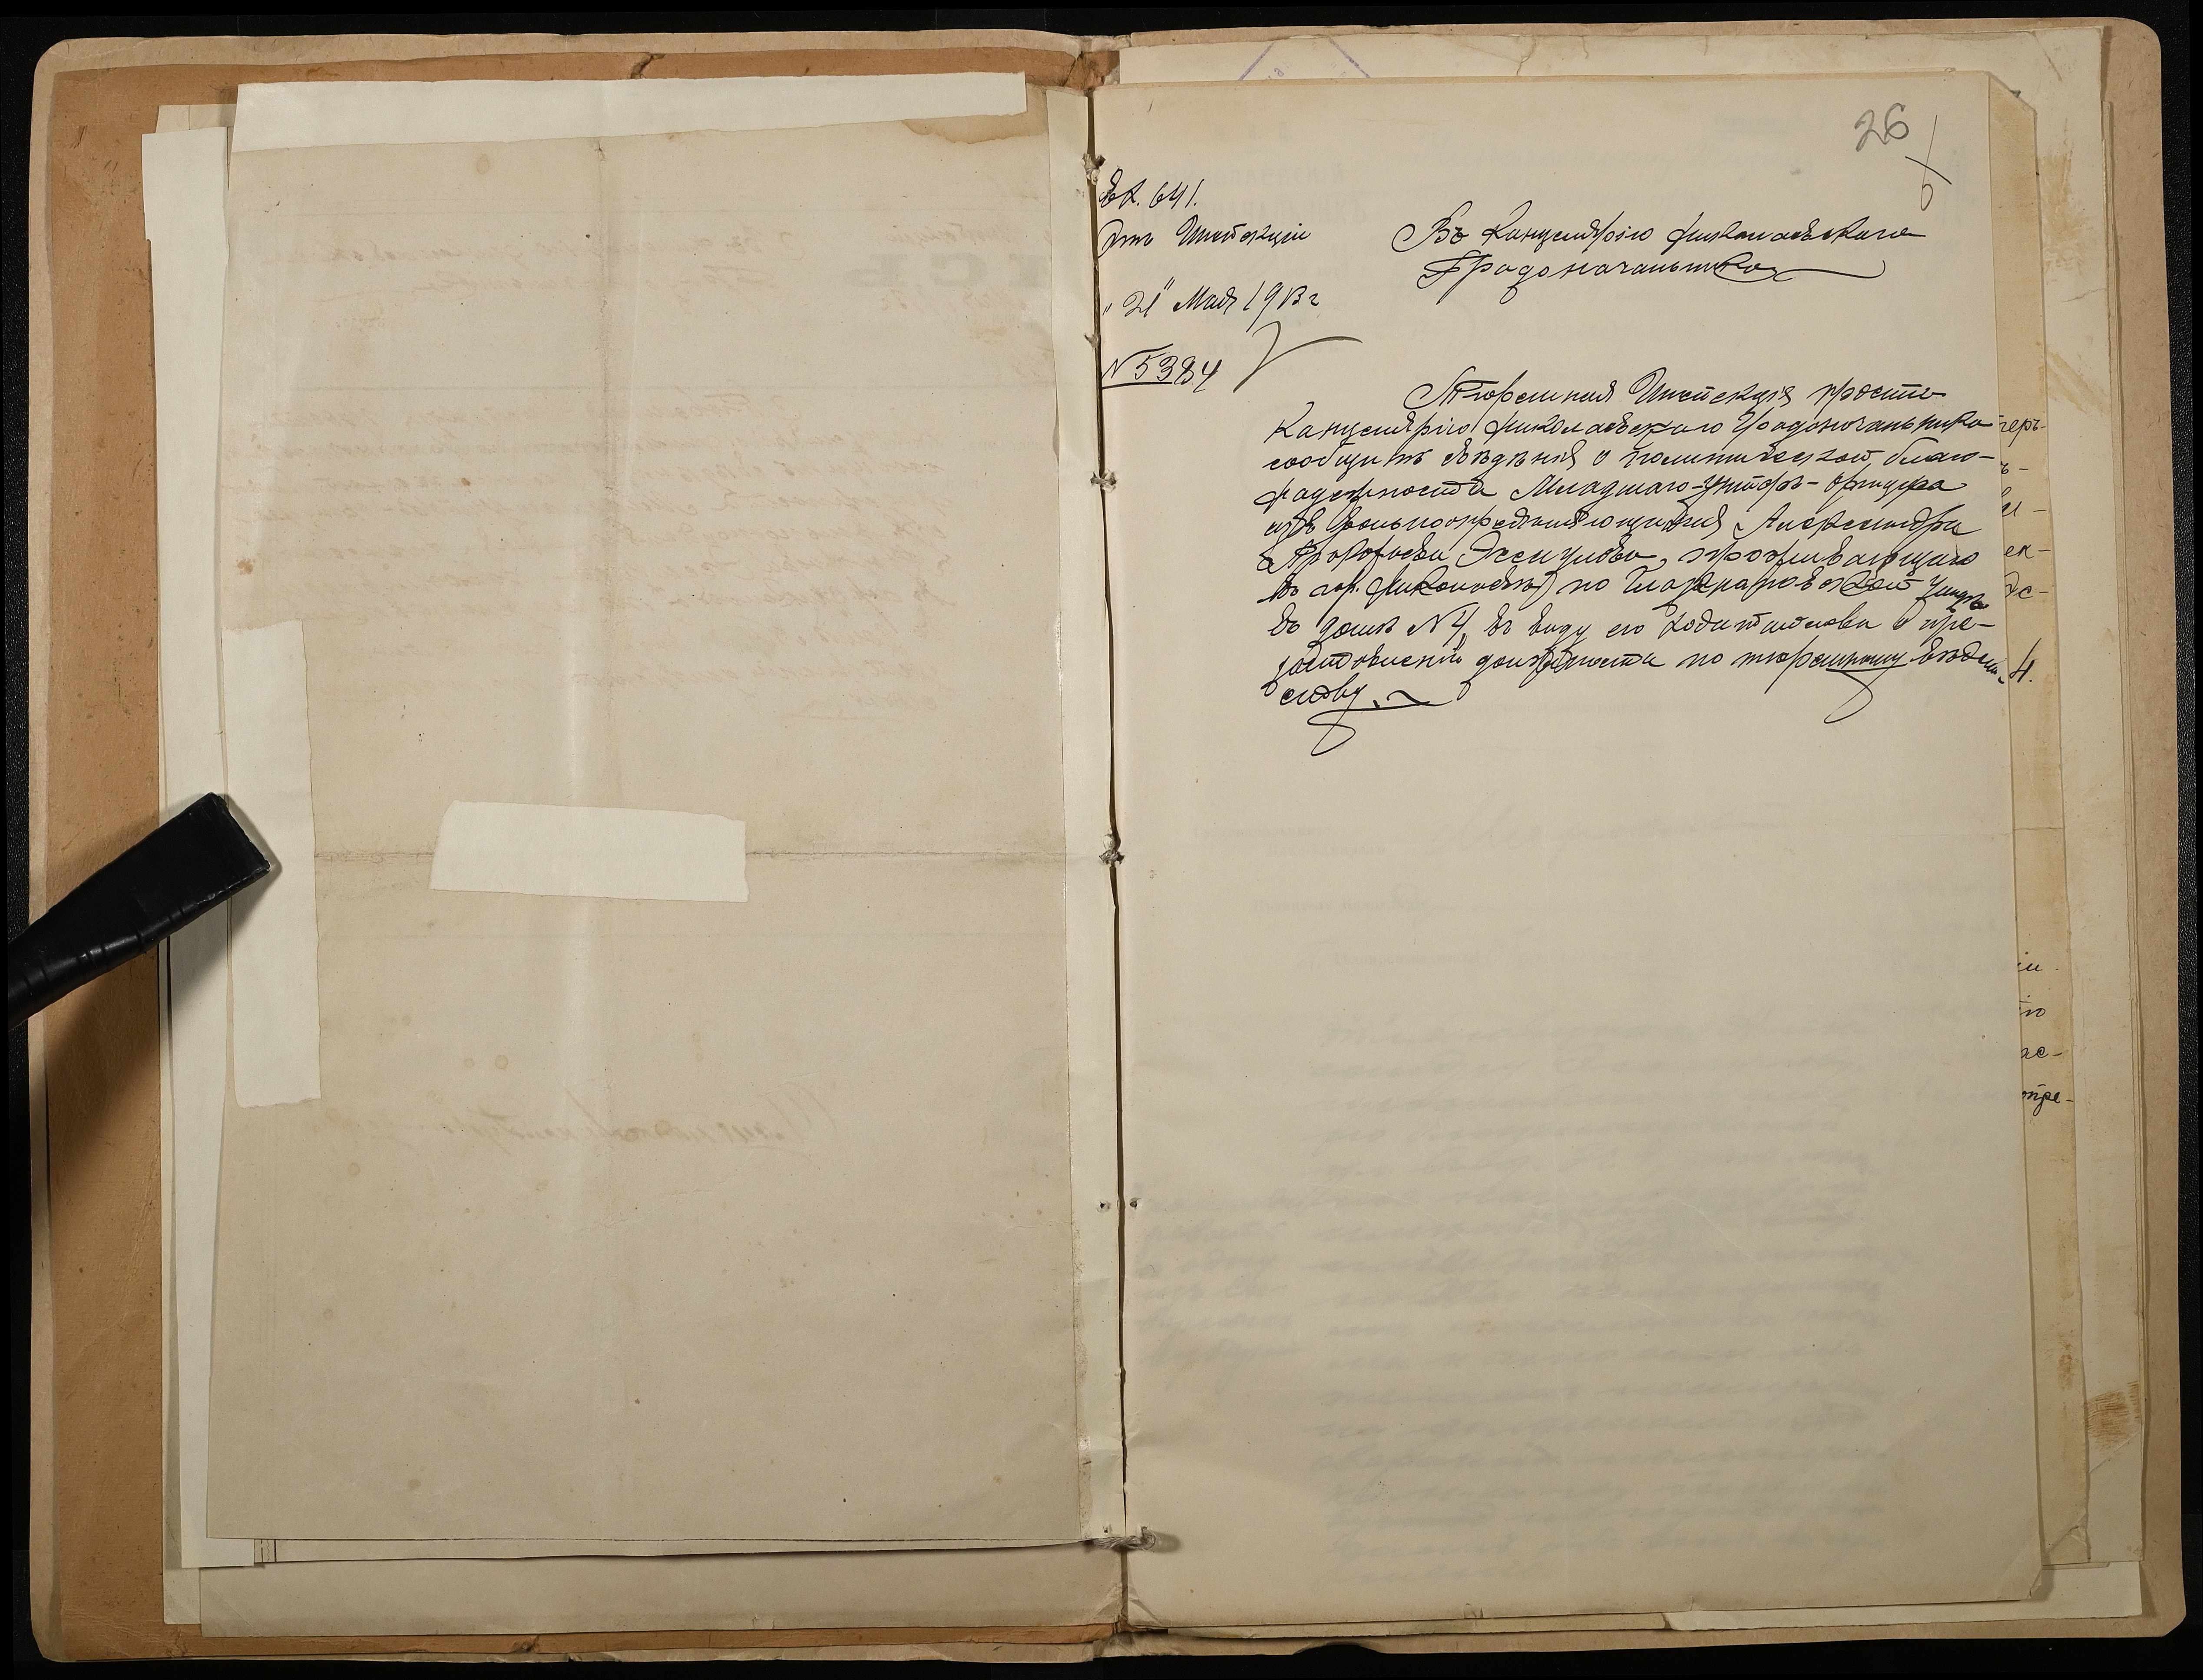 26
вх. 641.
Тюр Инспекціи
"21" Мая 1913 г
N 5384
Въ Канцелярію Николаевскаго
Градоначальника
Тюремная Инспекція проситъ
Канцелярію Николаевскаго Градоначальника
сообщить свѣдѣнія о политической благо-
надежности Младшаго унтеръ-офицера
изъ вольноопредѣляющихся Александра
Прокофьева, проживающаго
въ гор. Николаевѣ по улицѣ
въ домѣ N 4, въ виду его ходатайства о пре-
доставленіи должности по тюремному вѣдом-
ству.